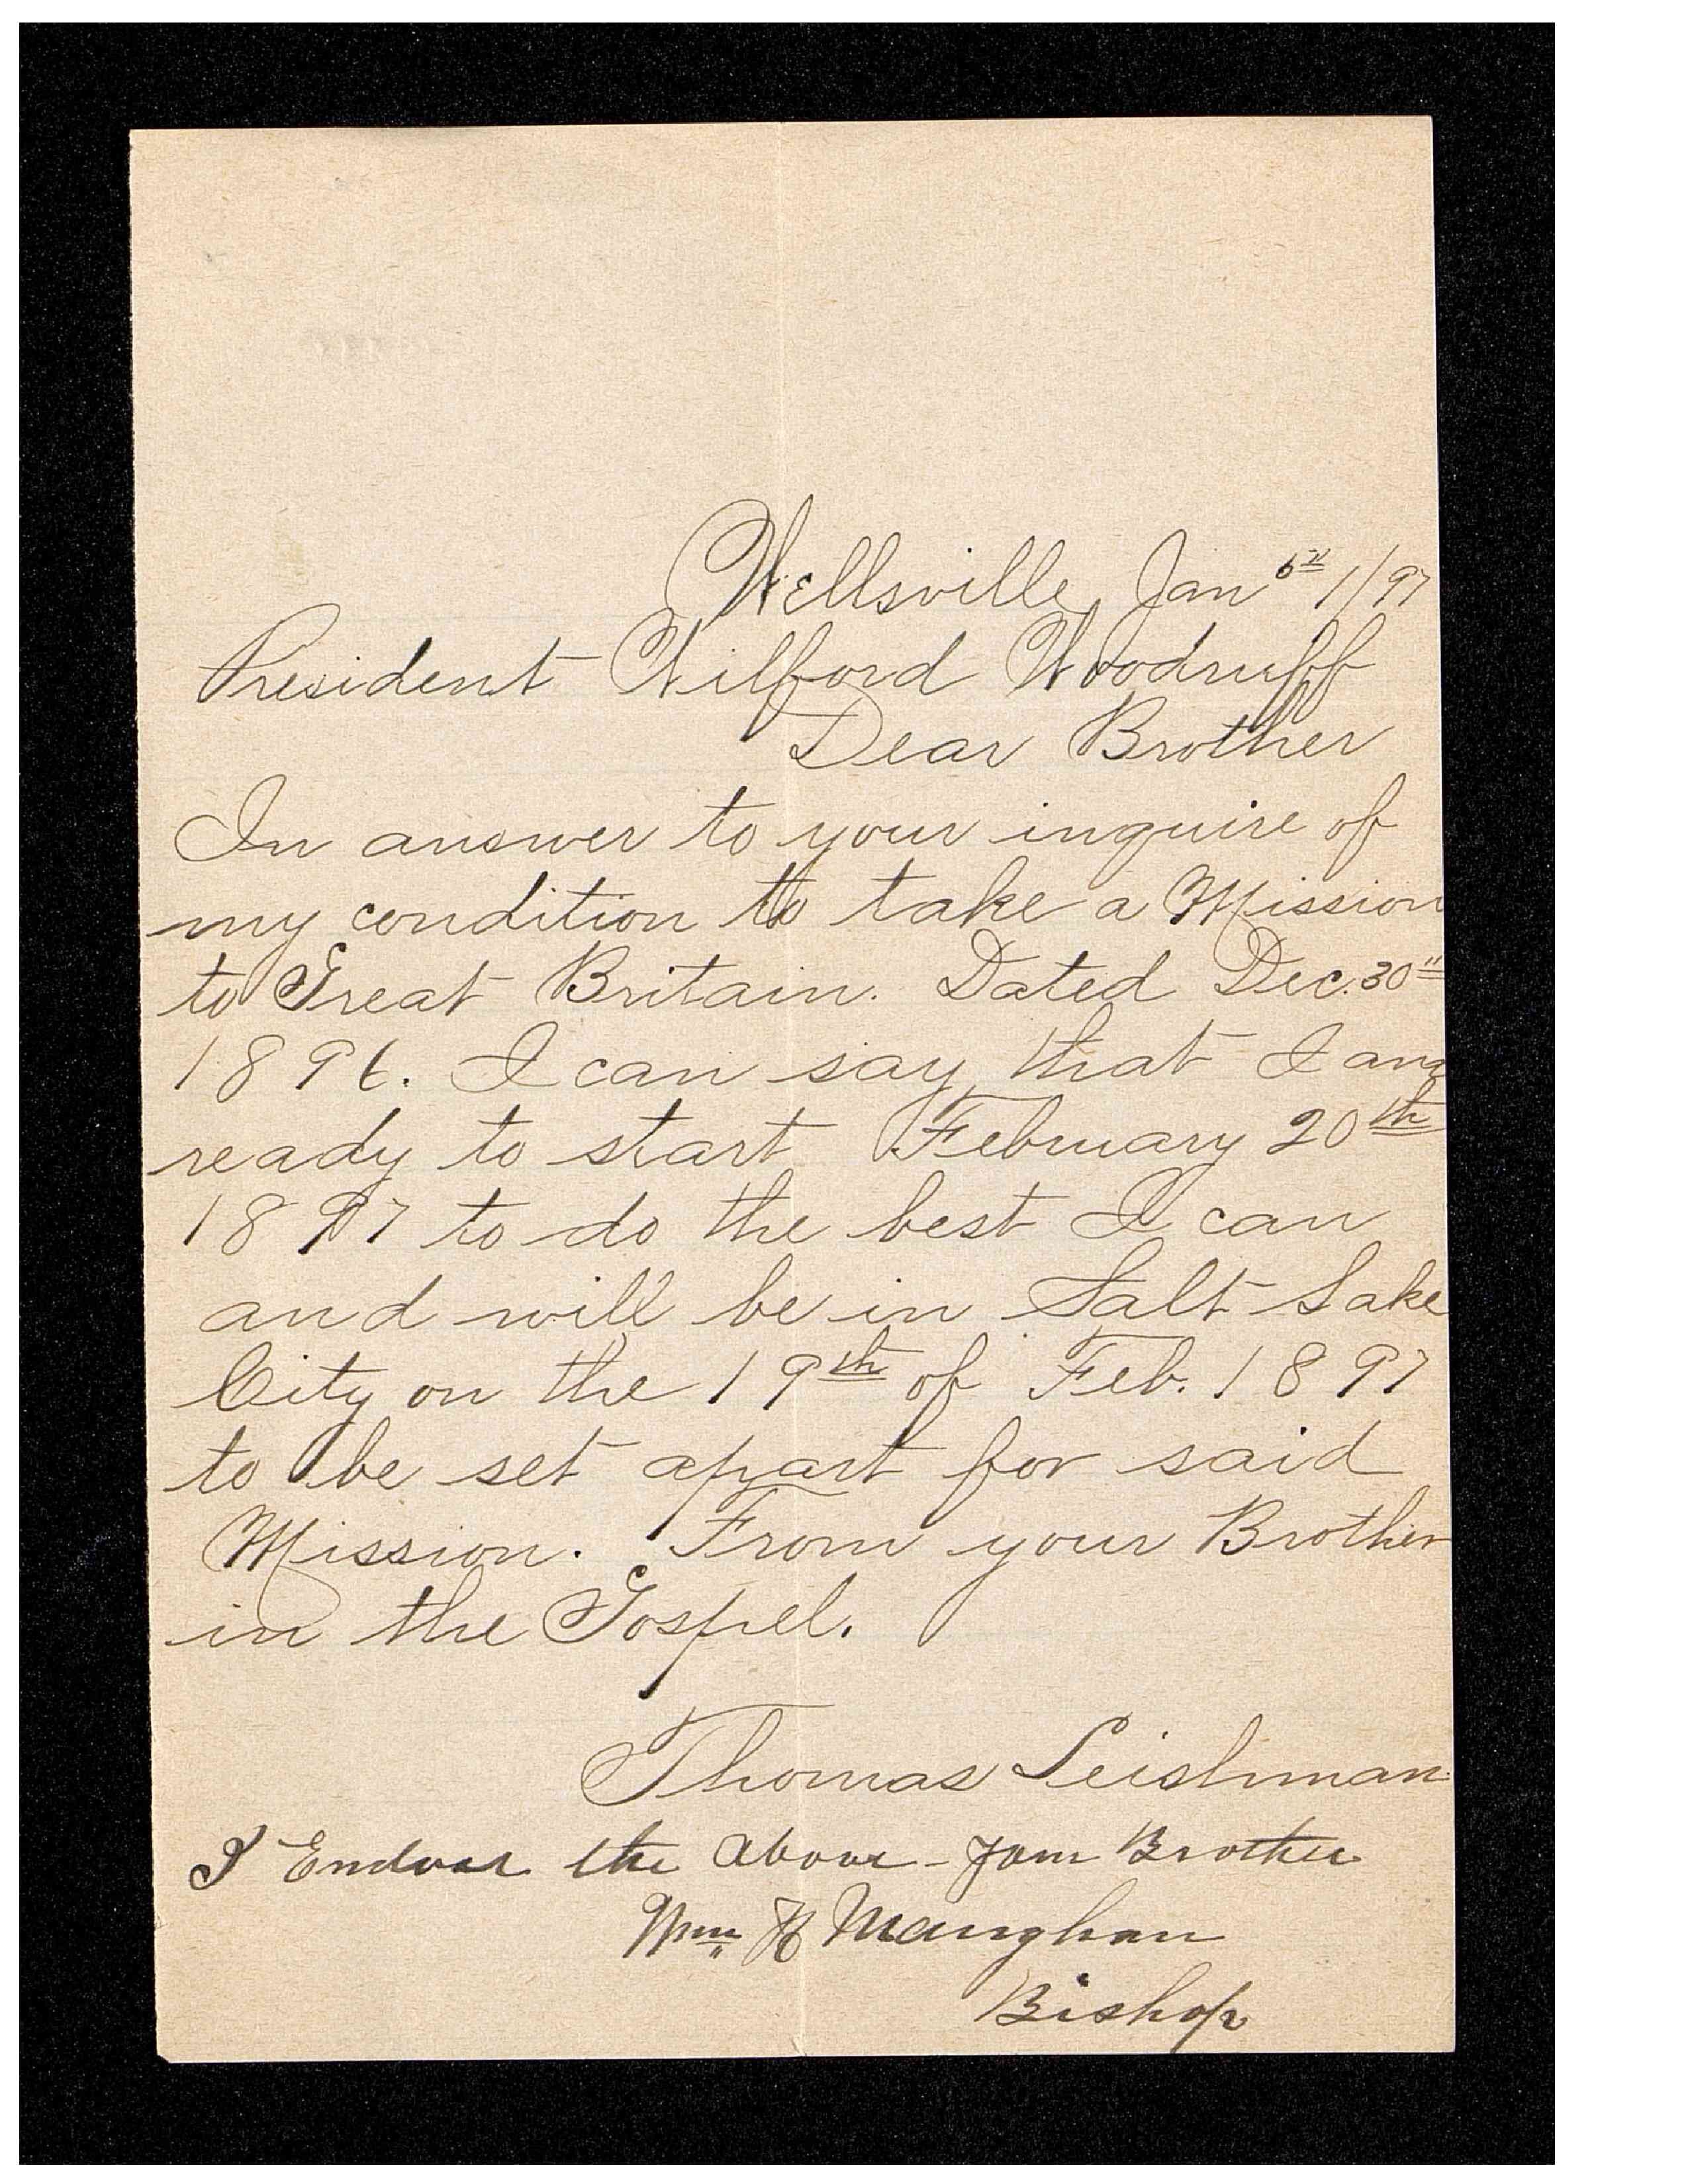 Wellsville, Jan 6th 1/97
President Wilford Woodruff
Dear Brother
In answer to your inquire of
my condition to take a Mission
to Great Britain. Dated Dec. 30"
1896. I can say that I am
ready to start February 20th
1897 to do the best I can
and will be in Salt Lake
City on the 19th of Feb. 1897
to be set apart for said
Mission. From your Brother
in the Gospel.
Thomas Leishman
I Endors the above - Your Brother
Wm H Maughan
Bishop